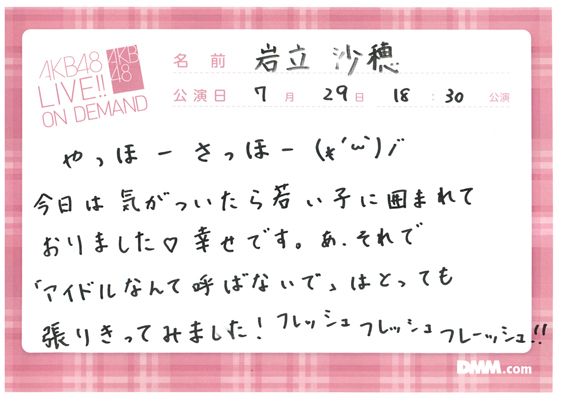 AKB48
LIVE!!
ON DEMAND
AKB
48
名前 岩立 沙穂
公演日 7月 29日 18:30 公演
やっほーさっほー(*´ω`)ノ
今日は気がついたら若い子に囲まれて
おりました♡幸せです。あ、それで
「アイドルなんて呼ばないで」はとっても
張りきってみました!フレッシュフレッシュフレーッシュ!!
DMM.com